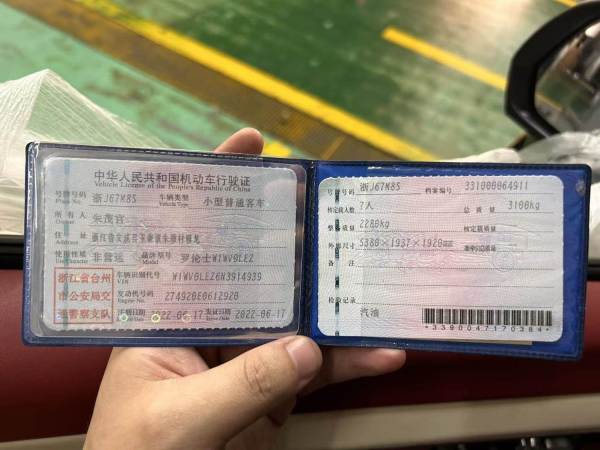 中华人民共和国机动车行驶证
Vehicle License of the People's Republic of China
号牌号码 浙J67K85 车辆类型 小型普通客车
Plate No. Vehicle Type
所有人 朱茂官
Owner
住址
Address
使用性质 非营运 品牌型号 罗伦士W1WV0LEZ
Model
浙江省台州
市公安局交
通警察支队
车辆识别代号 W1WV0LEZ6N3914939
VIN
发动机号码 274920E0612920
Engine No.
注册日期 发证日期 2022-06-17
号牌号码 浙J67K85 档案编号 331000064911
核定载人数 7人 总质量 3100kg
整备质量 2280kg
外廓尺寸 5380×1937×1920mm
备注
检验记录
汽油
*3390047170384*